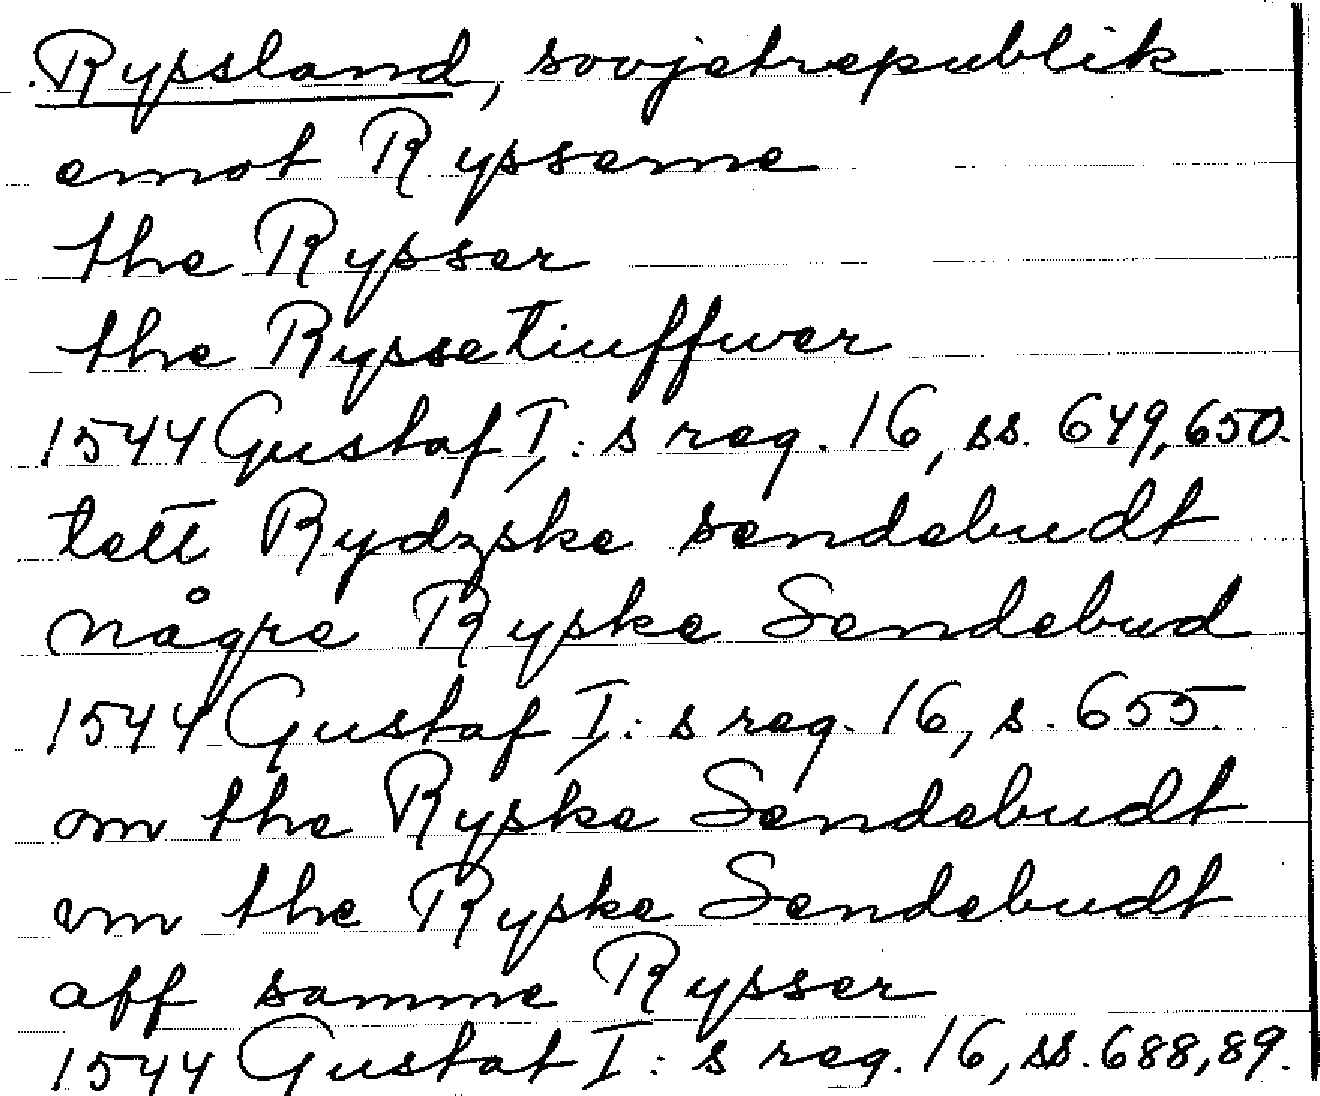 Ryssland, sovjetrepublik
emot Rysserne
the Rysser
the Rysse tiuffwer
1544 Gustaf I: s reg. 16, ss. 649, 650.
tett Rydzske sendebudt
någre Ryske Sendebud
1544 Gustaf I: s reg. 16, s. 655.
om the Ryske Sendebudt
vm the Ryske Sendebudt
aff samme Rysser
1544 Gustaf I: s reg. 16, ss. 688, 89.